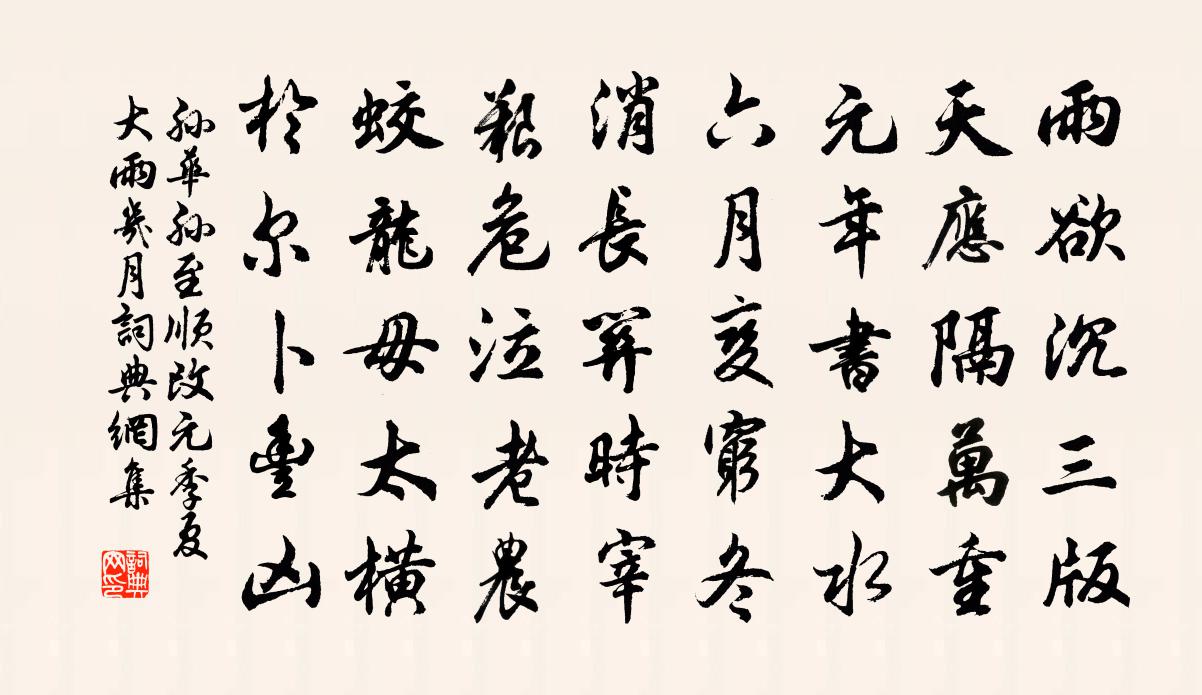 雨欲沉三版
天應隔萬重
元年書大水
六月變窮冬
消長關時宰
艱危泣老農
蛟龍毋太橫
於尔卜豐凶
孙華孙至順改元季夏
大雨幾月詞典網集
詞典網印